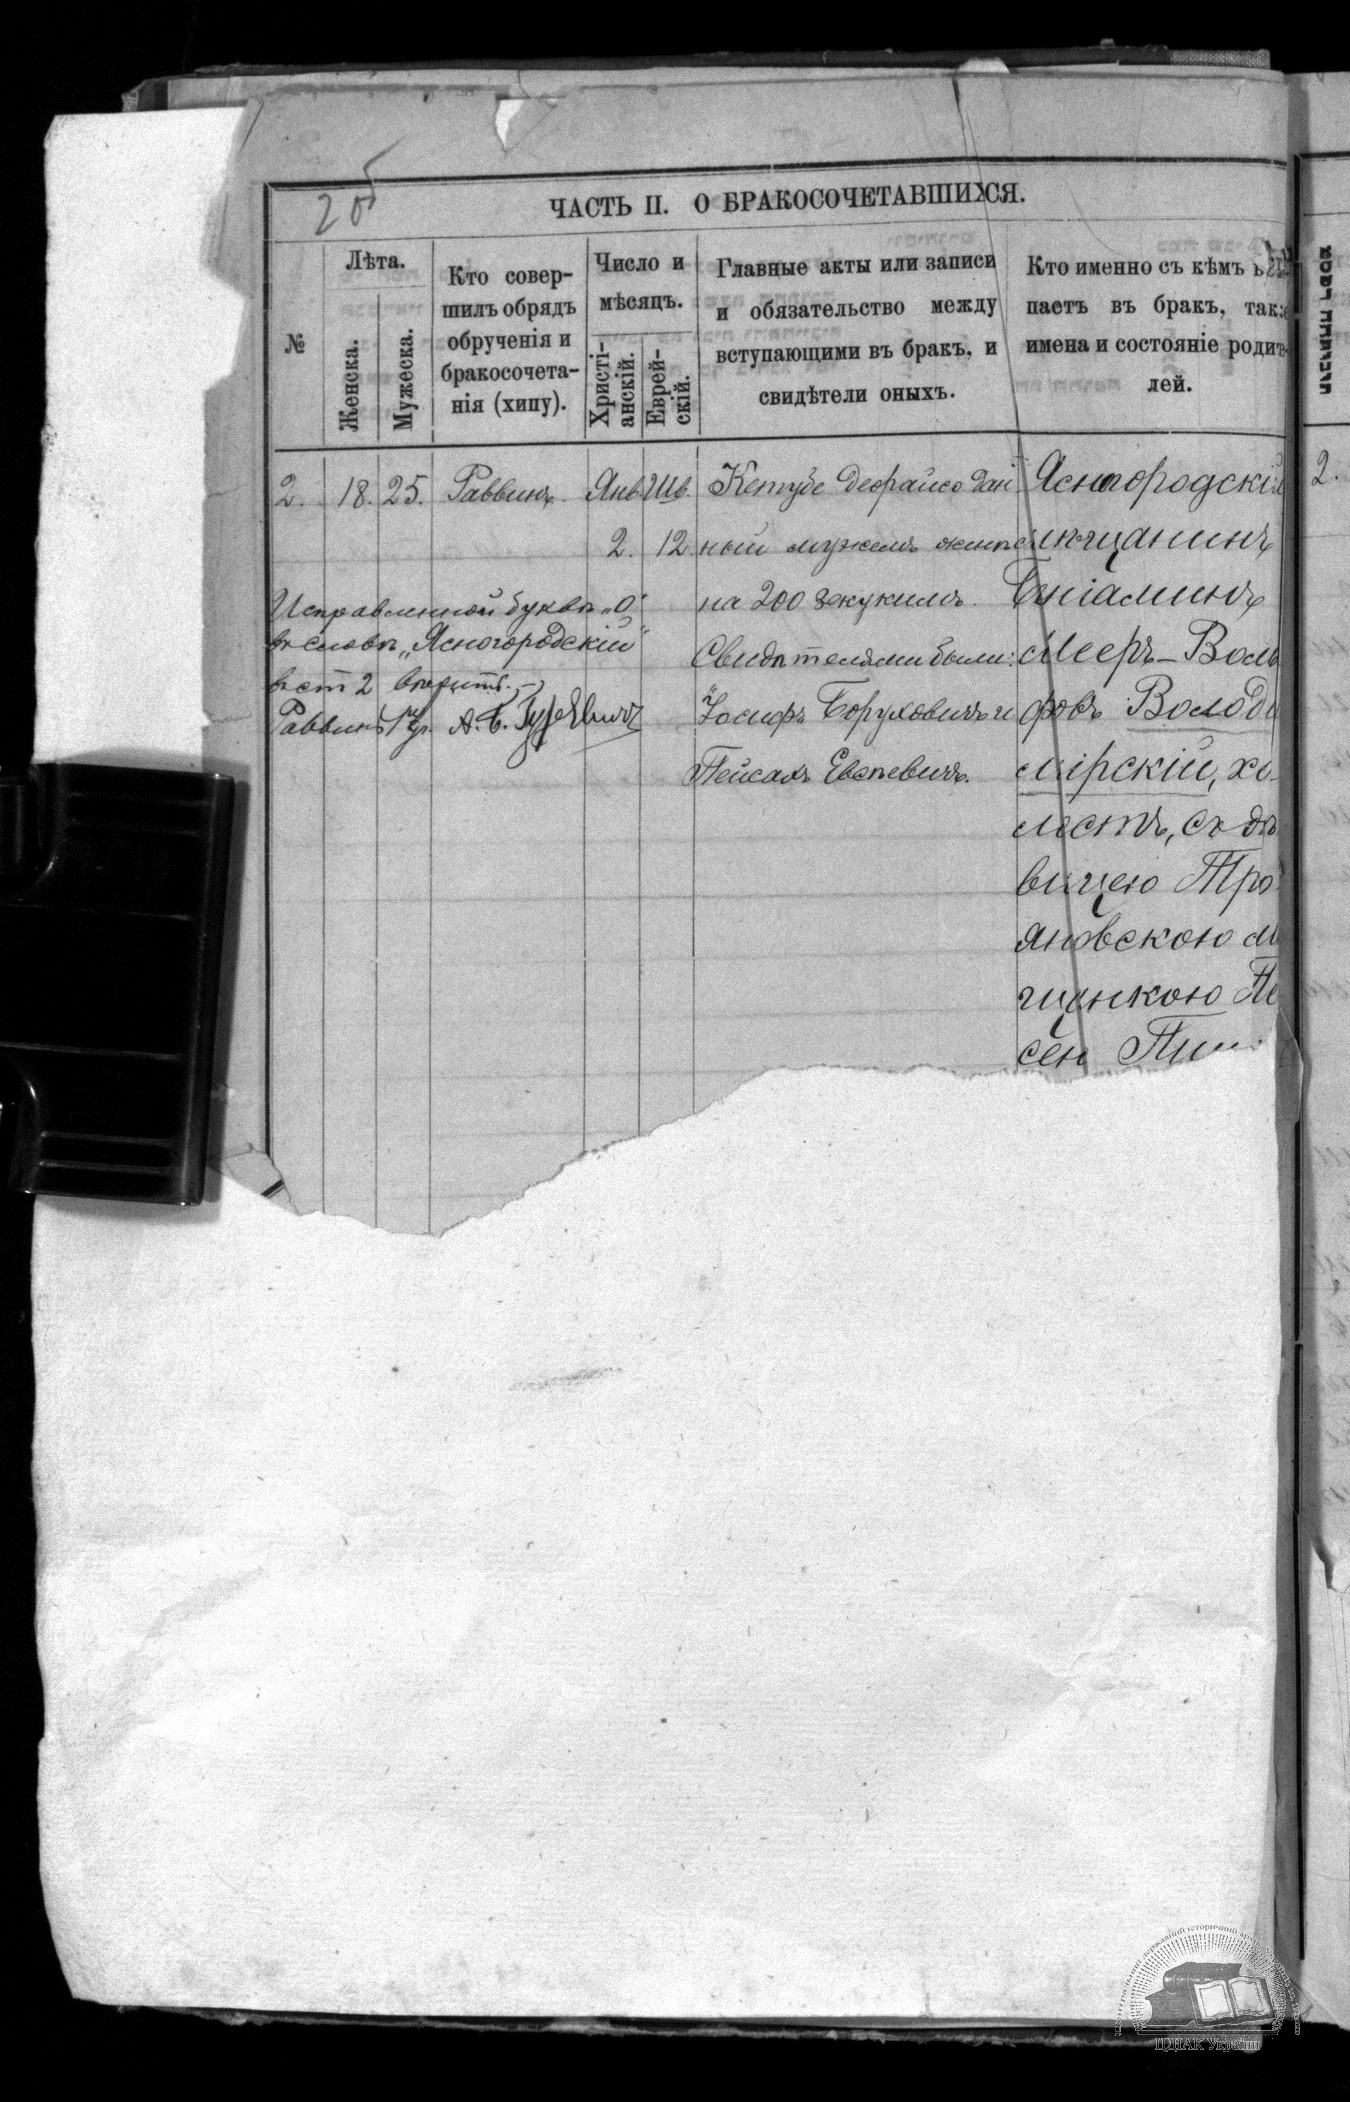 2об
ЧАСТЬ II. О БРАКОСОЧЕТАВШИХСЯ.
№
Лѣта.
Женска.
Мужеска.
Кто совер-
шилъ обрядъ
обрученія и
бракосочета-
нія (хипу).
Число и
мѣсяцъ.
Христі-
анскій.
Еврей-
скій.
Главные акты или записи
и обязательство между
вступающими въ бракъ, и
свидѣтели оныхъ.
Кто именно съ кѣмъ
паетъ въ бракъ, также
имена и состояніе родит-
лей.
2. 18. 25. Раввинъ Янв. Шв.
2. 12
Кетубе деорайсо дан
ный мужемъ женѣ
на 200 зекукимъ.
Свидѣтелями были:
Іосифъ Боруховичъ и
Пейсахъ Евелевичъ.
Ясногородскій
мѣщанинъ
Беніаминъ
Мееръ-Воль
фовъ Волод
мірскій, хо-
лостъ, съ дѣ
вицею Тро
яновскою м
щанкою Пе
сен
Исправленной буквѣ „о"
въ словѣ „Ясногородскій"
в ст 2 вѣрить.
Раввинъ
2.